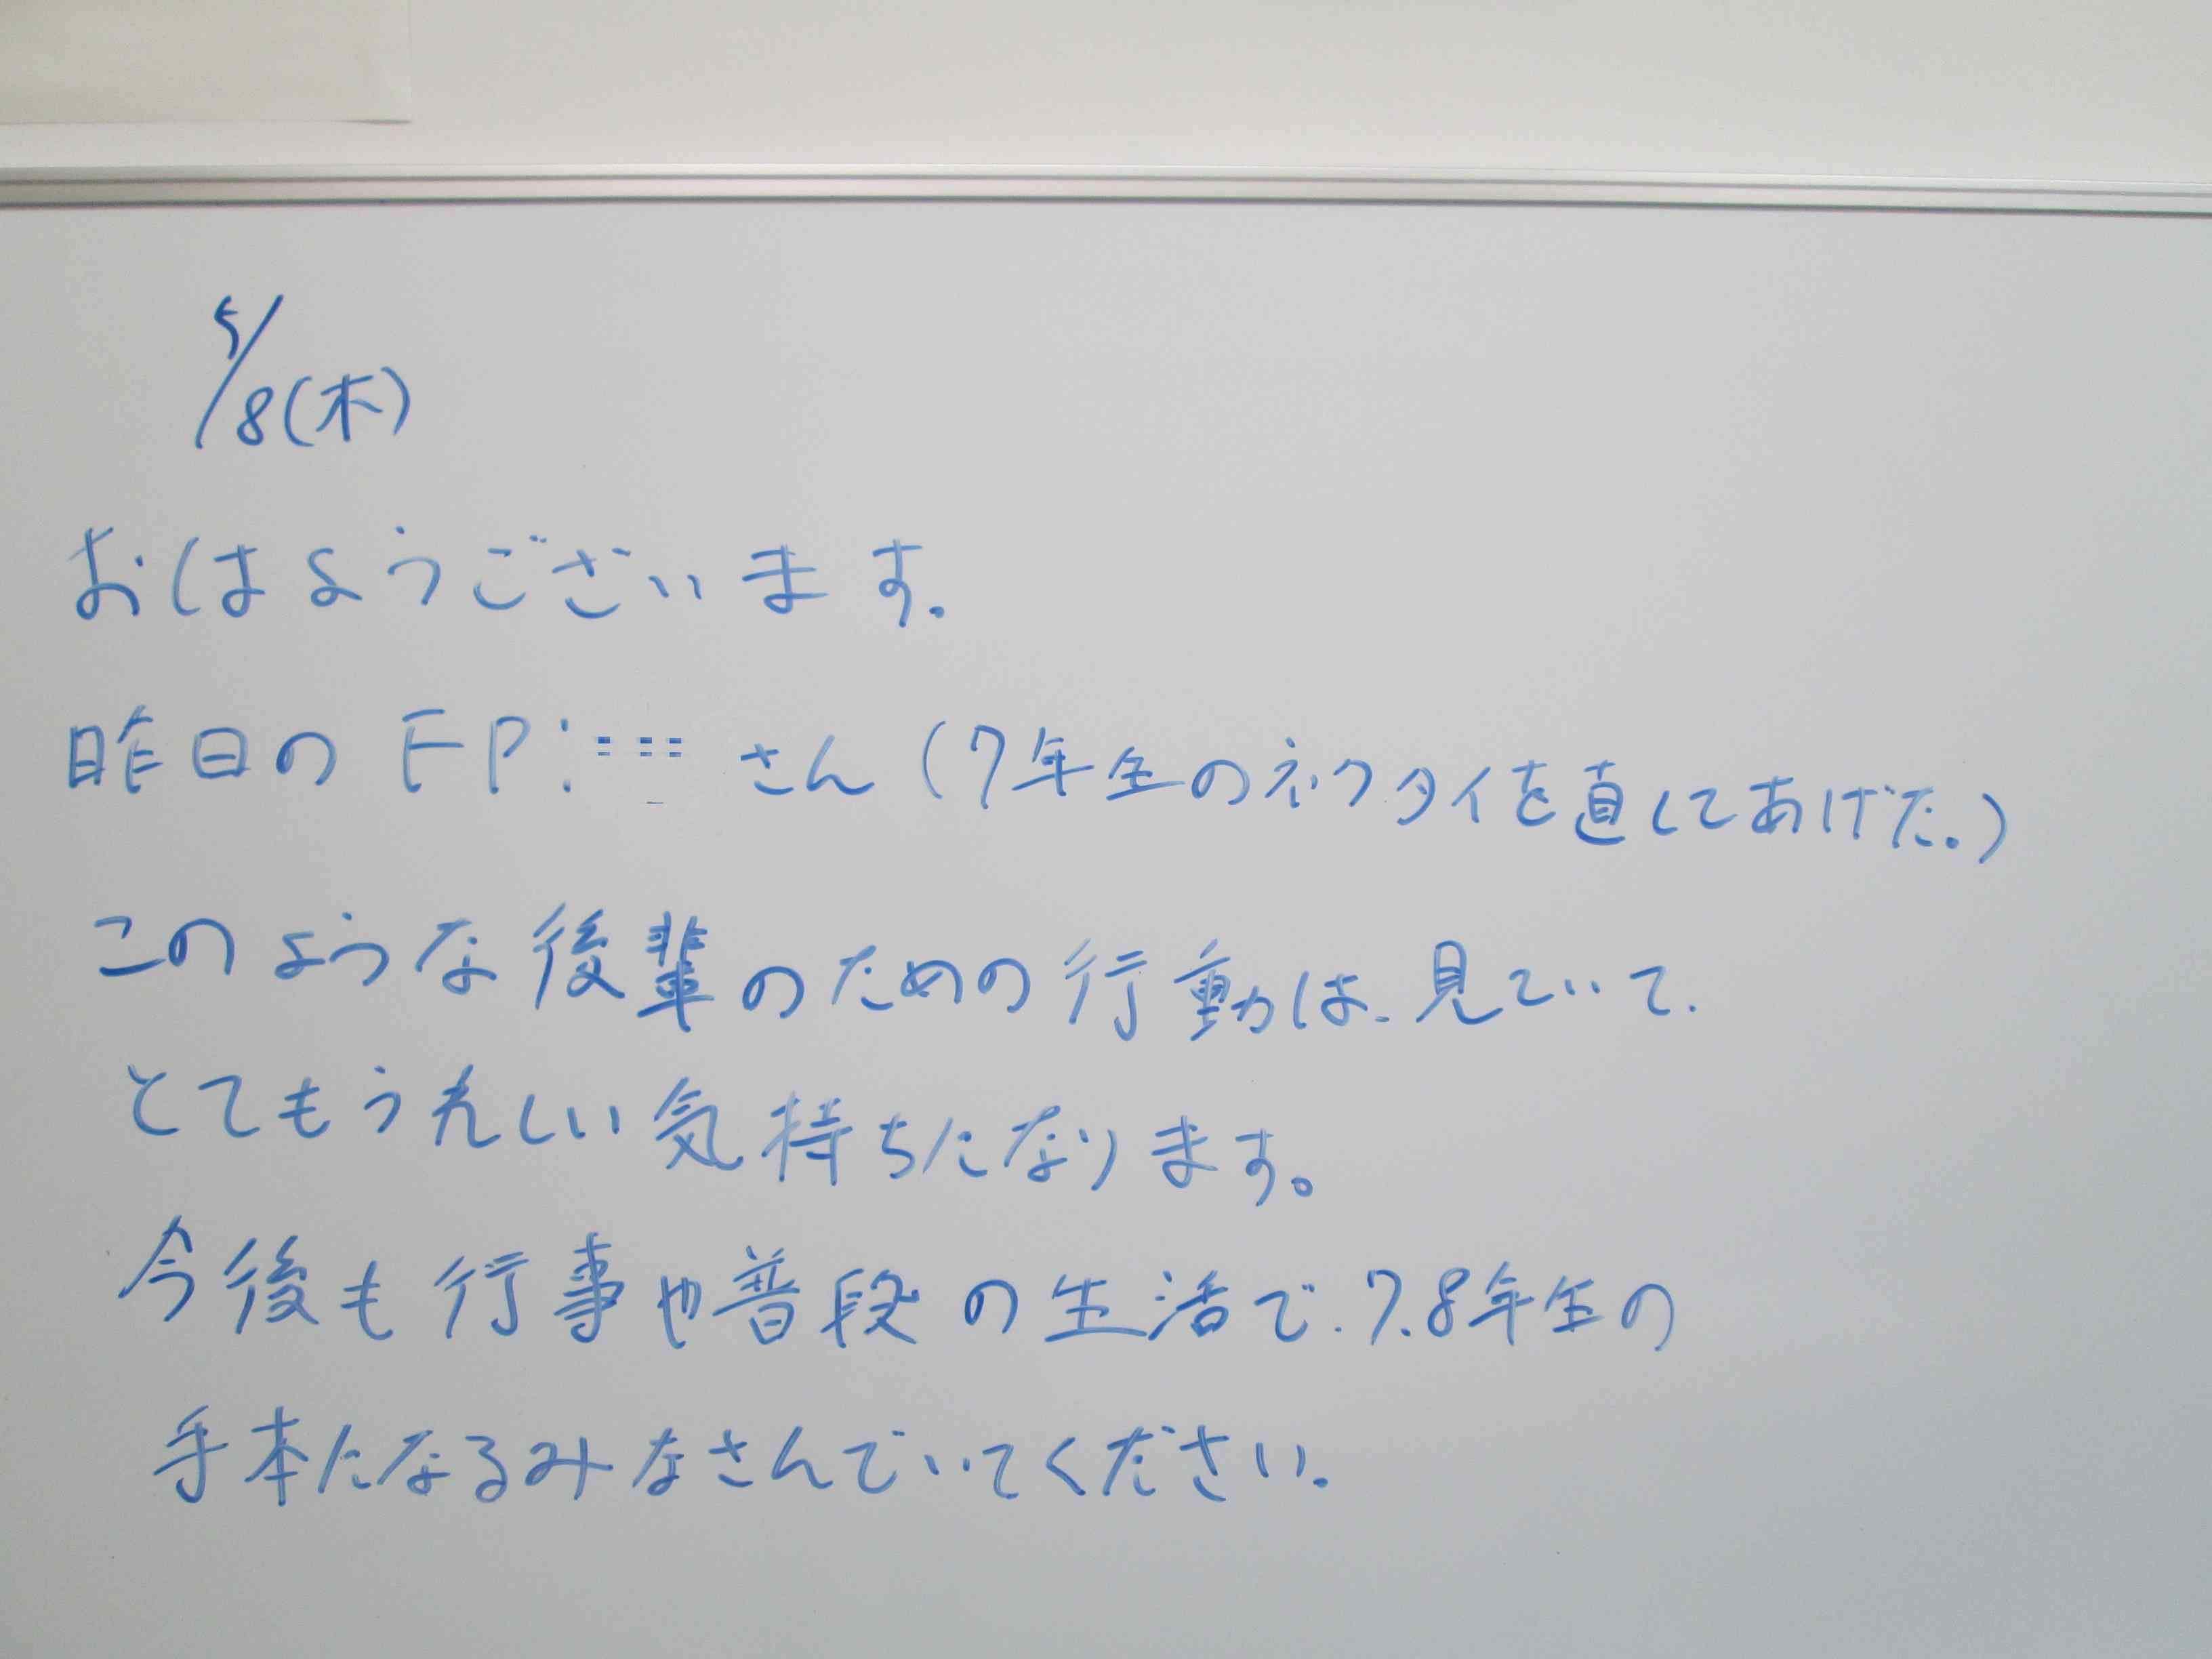 5/8(木)
おはようございます。
昨日のFP: さん(7年生のネクタイを直してあげた。)
このような後輩のための行動は、見ていて、
とてもうれしい気持ちになります。
今後も行事や普段の生活で、7.8年生の
手本になるみなさんでいてください。